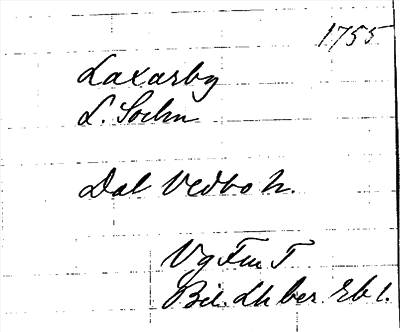 1755
Laxarby
L. Socken
Dal Vedbo h.
Vg Fm T
Bil. Lh ber. Rb 1.